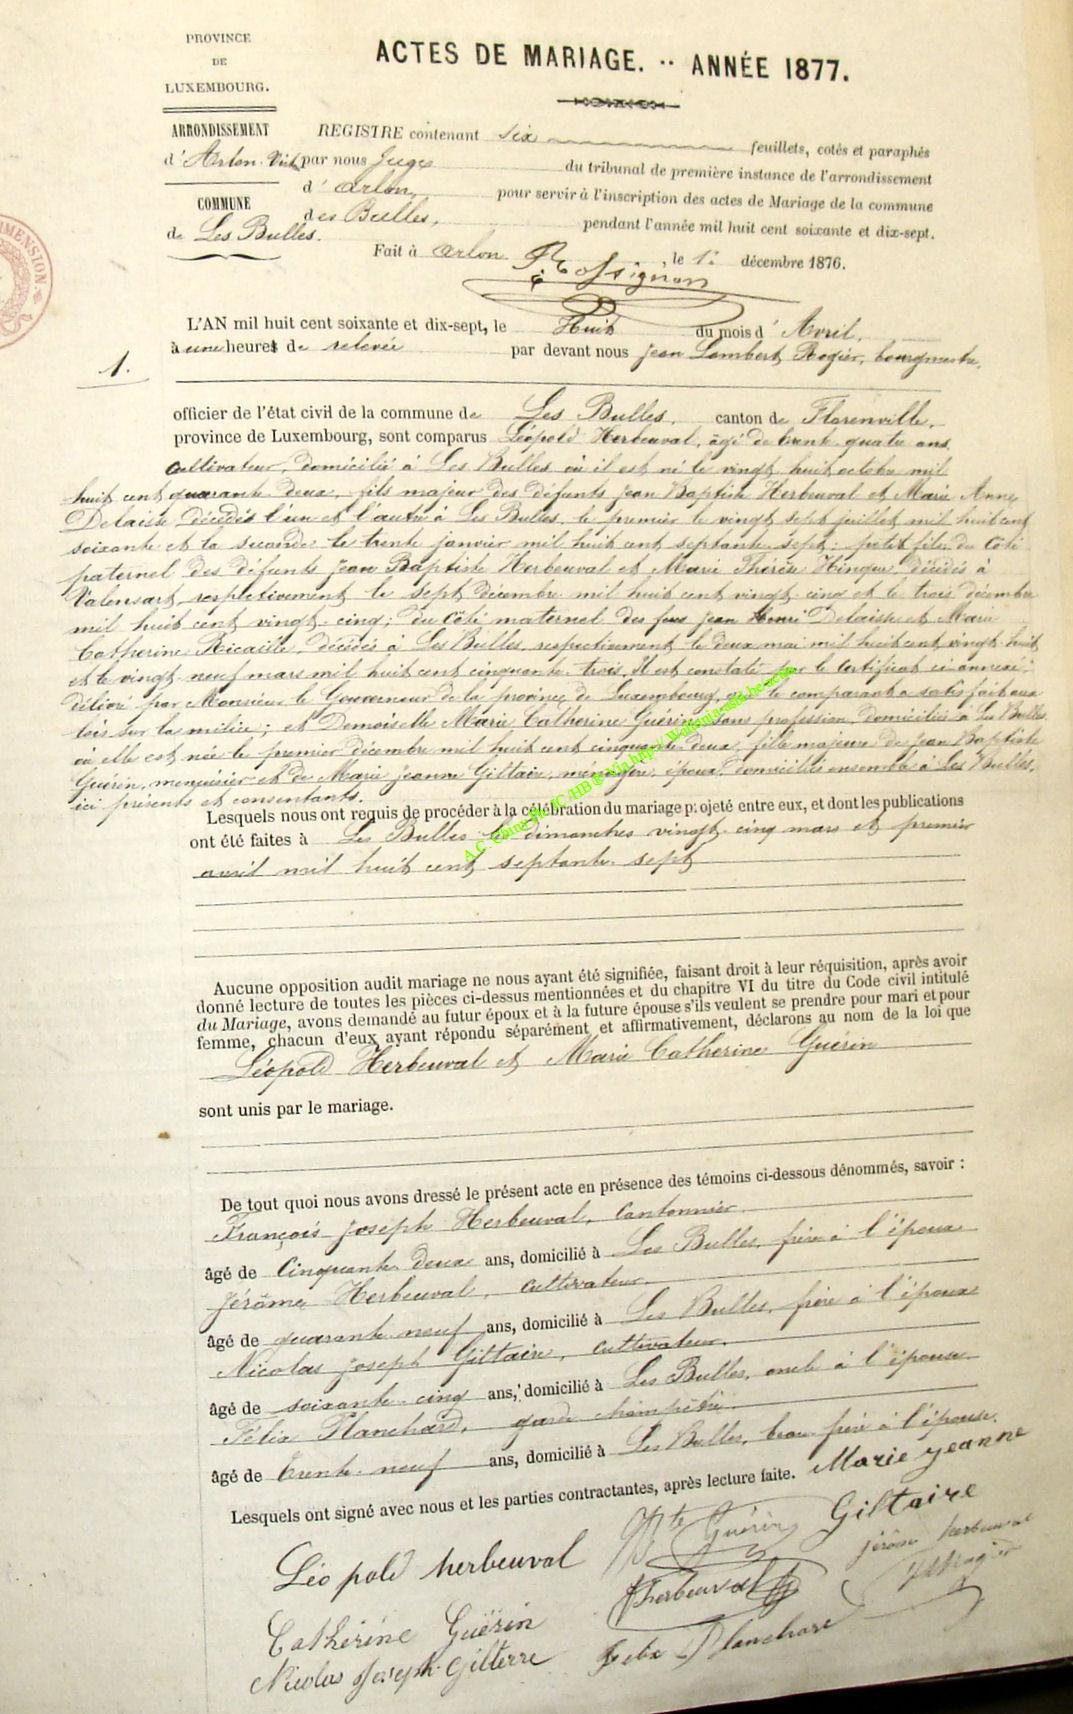 PROVINCE
DE
LUXEMBOURG.
ACTES DE MARIAGE. -- ANNÉE 1877.
ARRONDISSEMENT
d'Arlon
COMMUNE
de Les Bulles.
REGISTRE contenant six feuillets, cotés et paraphés
par nous Juge du tribunal de première instance de l'arrondissement
d'arlon, pour servir à l'inscription des actes de Mariage de la commune
des Bulles, pendant l'année mil huit cent soixante et dix-sept.
Fait à arlon le 1er décembre 1876.
Rossignon
MENSION
1.
L'AN mil huit cent soixante et dix-sept, le Huit du mois d'Avril,
à une heures de relevée par devant nous Jean Lambert Rogier, bourgmestre,
officier de l'état civil de la commune de Les Bulles, canton de Florenville,
province de Luxembourg, sont comparus Léopold Herbeuval, âgé de trente quatre ans,
cultivateur, domicilié à Les Bulles où il est né le vingt huit octobre mil
huit cent quarante deux, fils majeur des défunts Jean Baptiste Herbeuval et Marie Anne
Delaisse décédés l'un et l'autre à Les Bulles, le premier le vingt sept juillet mil huit cent
soixante et la seconde le trente janvier mil huit cent septante sept; petit fils du côté
paternel des défunts Jean Baptiste Herbeuval et Marie Thérèse Hinque, décédés à
Valensart, respectivement le sept décembre mil huit cent vingt cinq et le trois décembre
mil huit cent vingt-cinq; du côté maternel des feus Jean Henri Delaisse et Marie
Catherine Ricaille, décédés à Les Bulles, respectivement le deux mai mil huit cent vingt huit
et le vingt neuf mars mil huit cent cinquante trois. Il est constaté par le certificat ci-annexé
délivré par Monsieur le Gouverneur de la province de Luxembourg, que le comparant a satisfait aux
lois sur la milice; et Demoiselle Marie Catherine Guérin, sans profession, domiciliée à Les Bulles
où elle est née le premier décembre mil huit cent cinquante deux, fille majeure de Jean Baptiste
Guérin, menuisier et de Marie Jeanne Giltaire, ménagère, époux domiciliés ensemble à Les Bulles,
ici présents et consentants.
Lesquels nous ont requis de procéder à la célébration du mariage projeté entre eux, et dont les publications
ont été faites à Les Bulles les dimanches vingt-cinq mars et premier
avril mil huit cent septante sept
Aucune opposition audit mariage ne nous ayant été signifiée, faisant droit à leur réquisition, après avoir
donné lecture de toutes les pièces ci-dessus mentionnées et du chapitre VI du titre du Code civil intitulé
du Mariage, avons demandé au futur époux et à la future épouse s'ils veulent se prendre pour mari et pour
femme, chacun d'eux ayant répondu séparément et affirmativement, déclarons au nom de la loi que
Léopold Herbeuval et Marie Catherine Guérin
sont unis par le mariage.
De tout quoi nous avons dressé le présent acte en présence des témoins ci-dessous dénommés, savoir :
François Joseph Herbeuval, cantonnier
âgé de Cinquante deux ans, domicilié à Les Bulles, frère à l'époux
Jérôme Herbeuval, cultivateur
âgé de quarante neuf ans, domicilié à Les Bulles, frère à l'époux
Nicolas Joseph Giltaire, cultivateur,
âgé de soixante cinq ans, domicilié à Les Bulles, oncle à l'épouse
Félix Planchard, garde champêtre
âgé de trente neuf ans, domicilié à Les Bulles, beau frère à l'épouse.
Lesquels ont signé avec nous et les parties contractantes, après lecture faite. Marie Jeanne
Giltaire
Léopold herbeuval
Guérin
jérôme herbeuval
herbeuval
Catherine Guërin
Nicolas Joseph Gilterre
Felix Planchard